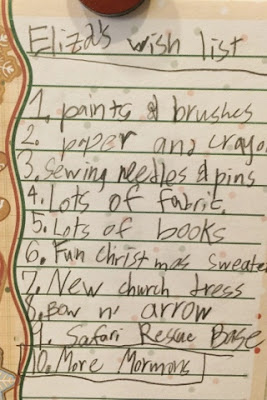 Eliza's wish list
1. paints & brushes
2. paper and crayo
3. sewing needles & pins
4. Lots of fabric
5. Lots of books
6. Fun Christmas sweate
7. New church dress
8. Bow n' arrow
9. Safari Rescue Base
10. More Mormons